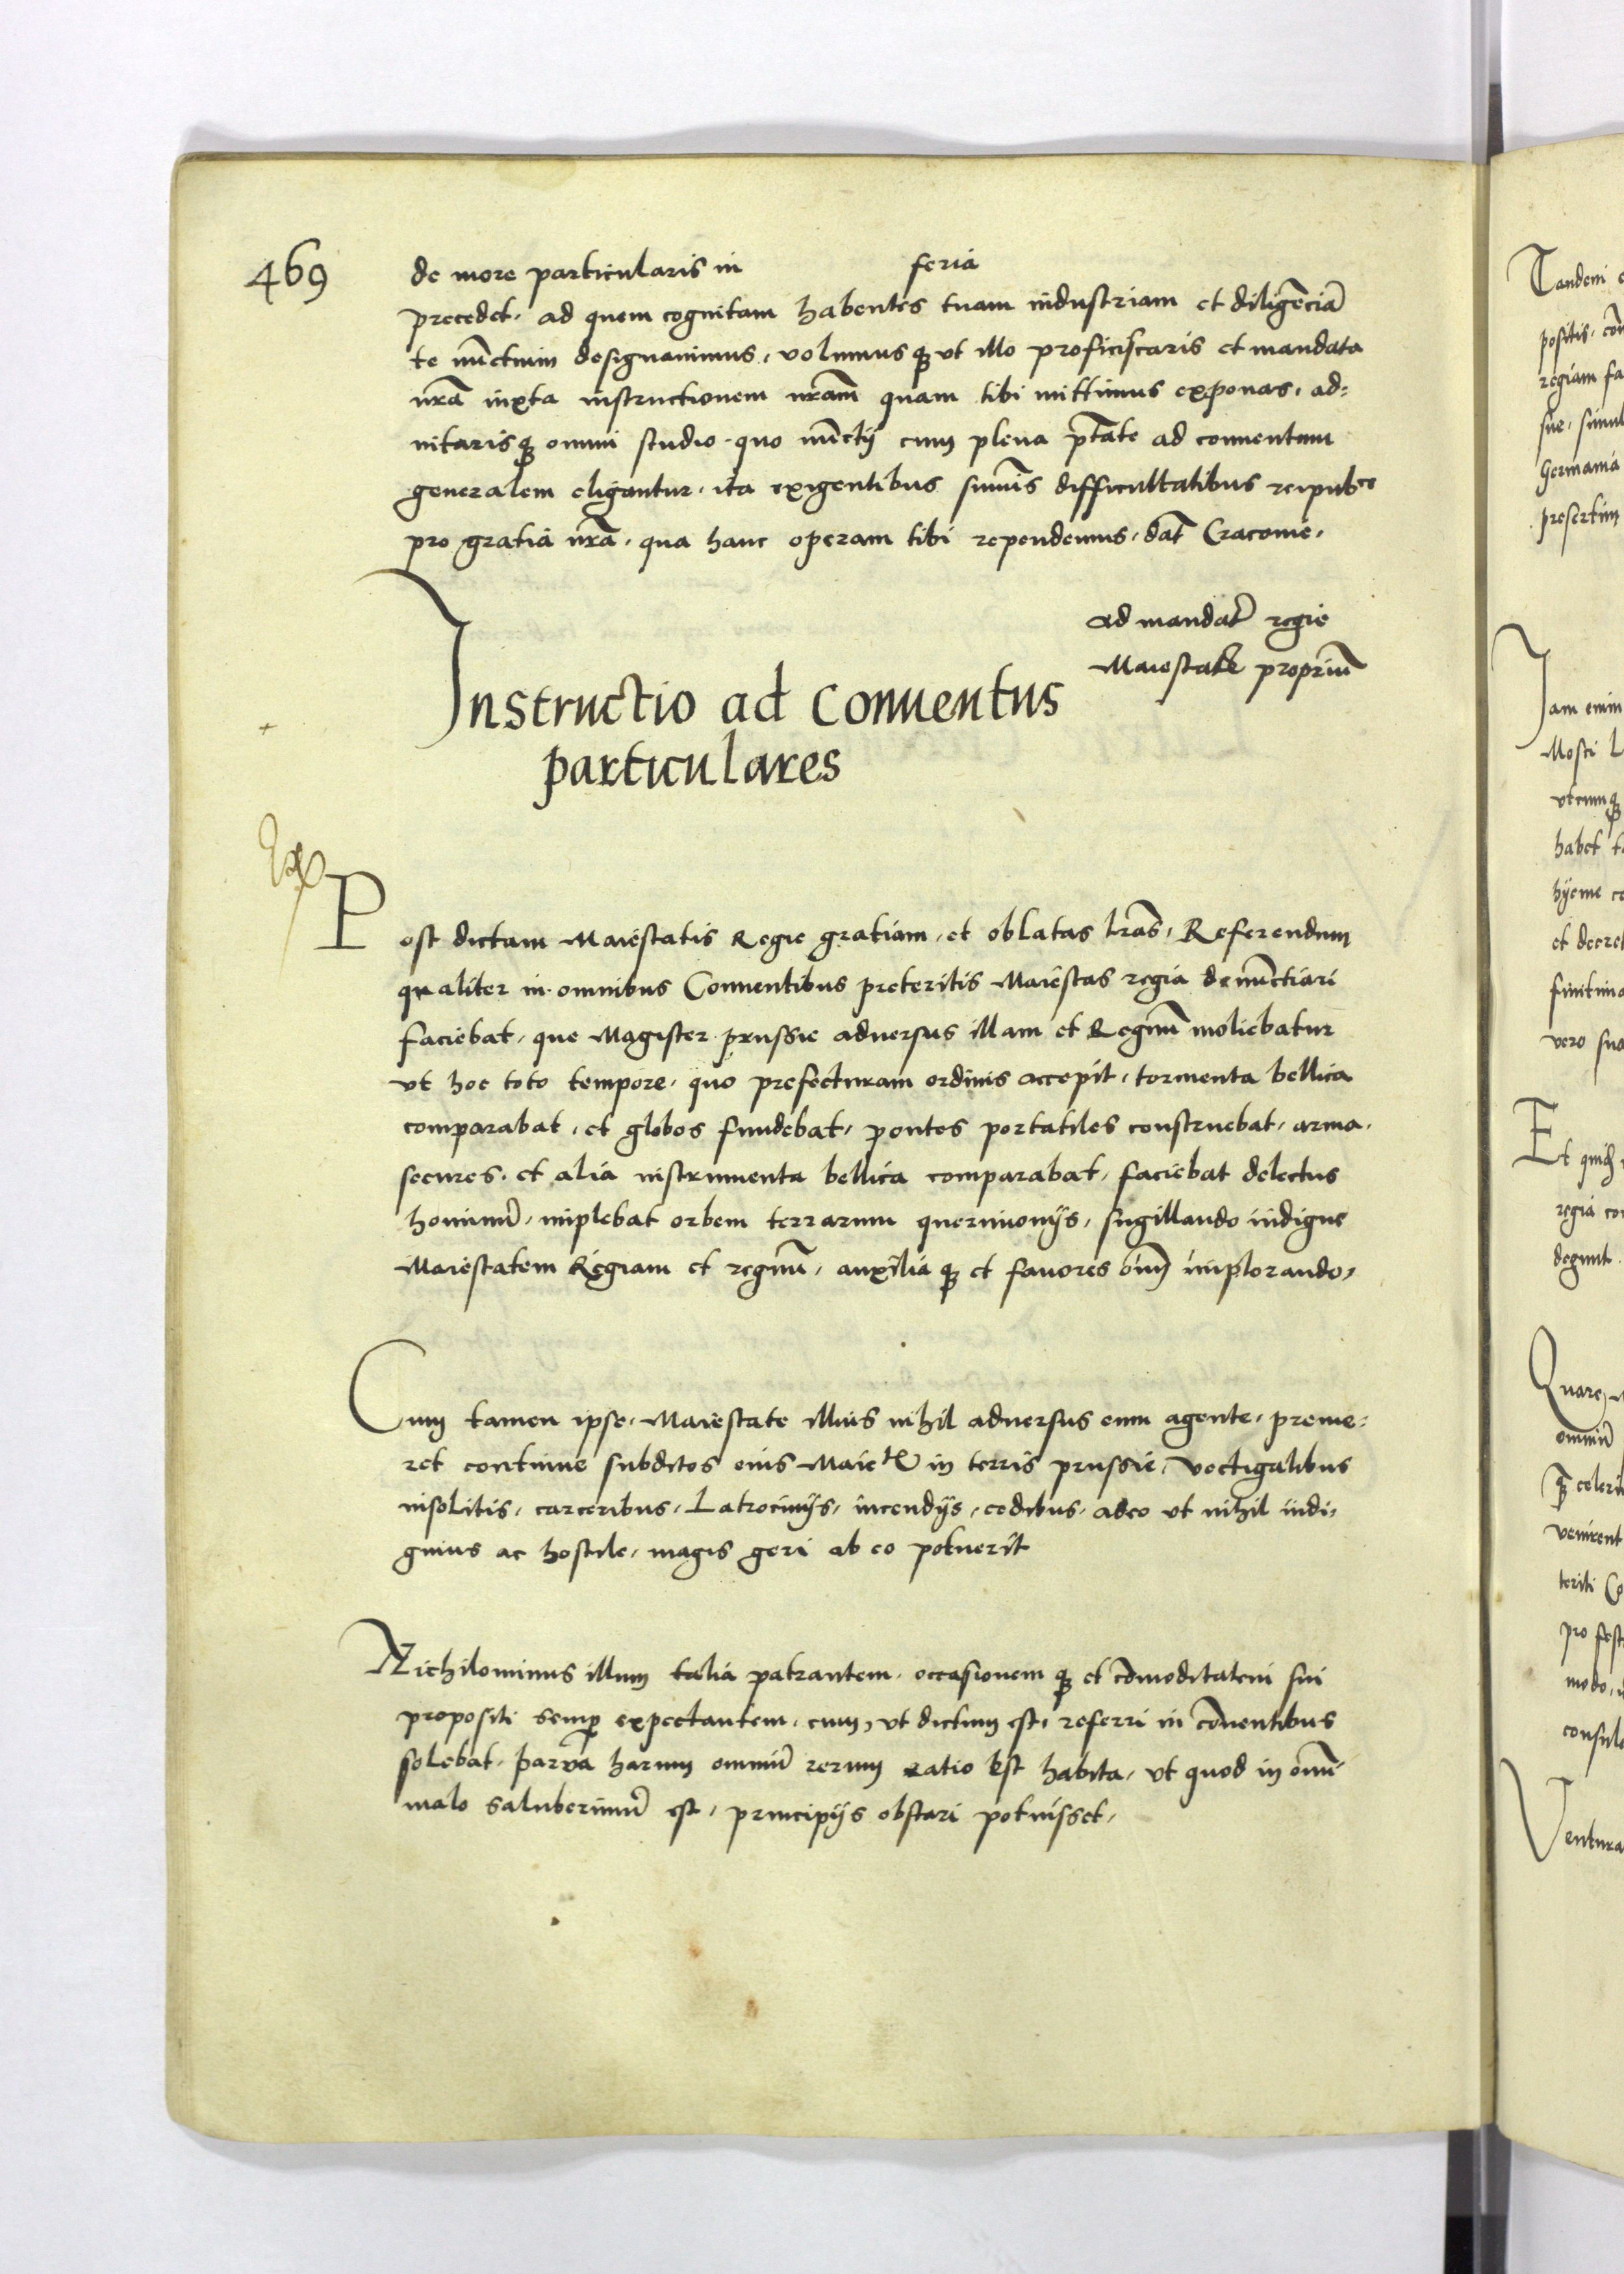 469
de more particularis in feria
precedet. ad quem cognitam habentes tuam industriam et diligẽciã
te nũctium designauimus, volumusq̨ vt illo proficiscaris et mandata
nrã iuxta instructionem nrãm quam tibi mittimus exponas, ad=
nitarisq̨ omni studio quo nũctij cum plena ptãte ad conuentum
generalem eligantur, ita exigentibus sum̃is difficultatibus reipubce
pro gratia nrã, qua hanc operam tibi rependemus, dat̃ Cracouie.
ad mandat̃ regie
Maiestat̃ propriũ
Instructio ad Conuentus
particulares
Post dictam Maiestatis Regie gratiam, et oblatas lrãs, Referendum
qualiter in omnibus Conuentibus preteritis Maiestas regia denũctiari
faciebat, que Magister prussie aduersus illam et Regnũ moliebatur
vt hoc toto tempore, quo prefecturam ordinis accepit, tormenta bellica
comparabat, et globos fundebat, pontes portatiles construebat, arma,
secures, et alia instrumenta bellica comparabat, faciebat delectus
hominũ, implebat orbem terrarum querimonijs, sugillando indigne
Maiestatem Regiam et regnũ, auxilia q̨ et fauores oĩm implorando,
Cum tamen ipse, Maiestate illius nihil aduersus eum agente, preme=
ret continue subditos eius Maietis in terris prussie, vectigalibus
insolitis, carceribus, Latrocinijs, incendijs, cedibus, adeo vt nihil indi,
gnius ac hostile, magis geri ab eo potuerit
Nichilominus illum talia patrantem, occasionem q̨ et cõmoditatem sui
propositi semp̱ expectantem, cum, vt dictum est, referri in cõuentibus
solebat, parva harum omniũ rerum ratio Est habita, vt quod in om̃i
malo saluberimũ est, principijs obstari potuisset,